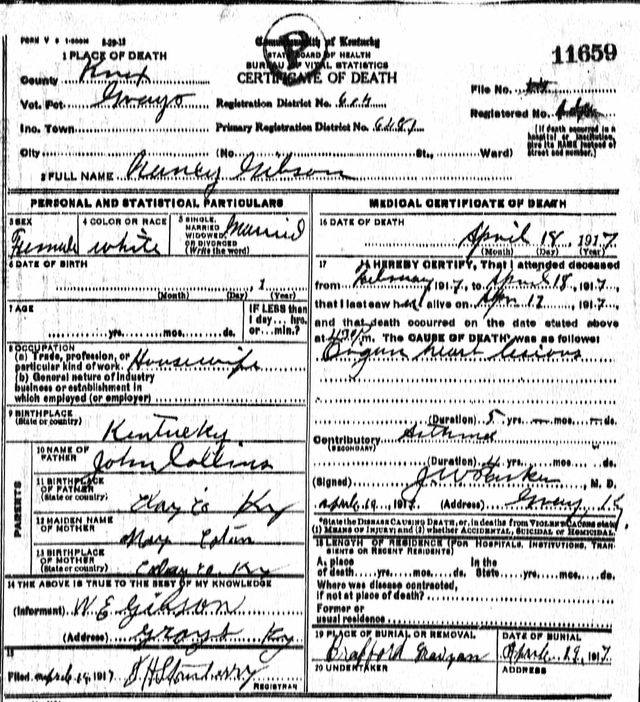 FORM V S 1-500M 8-29-13
Commonwealth of Kentucky
STATE BOARD OF HEALTH
BUREAU OF VITAL STATISTICS
CERTIFICATE OF DEATH
11659
1 PLACE OF DEATH
County Knox
Vot. Pct. Grays
Registration District No. 604
File No.
Inc. Town
Primary Registration District No. 6481
Registered No.
City (No. St., Ward)
[If death occurred in a hospital or institution, give its NAME instead of street and number.]
2 FULL NAME Nancy Gibson
PERSONAL AND STATISTICAL PARTICULARS
3 SEX
Female
4 COLOR OR RACE
white
5 SINGLE, MARRIED, WIDOWED OR DIVORCED (Write the word)
Married
6 DATE OF BIRTH
, 1
(Month) (Day) (Year)
7 AGE
yrs. mos. ds.
IF LESS than 1 day... hrs. or... min.?
8 OCCUPATION
(a) Trade, profession, or
particular kind of work. Housewife
(b) General nature of industry
business or establishment in
which employed (or employer)
9 BIRTHPLACE
(State or country)
Kentucky
PARENTS
10 NAME OF FATHER
John Collins
11 BIRTHPLACE OF FATHER
(State or country)
Clay Co Ky
12 MAIDEN NAME OF MOTHER
Mary
13 BIRTHPLACE OF MOTHER
(State or country)
Co Ky
14 THE ABOVE IS TRUE TO THE BEST OF MY KNOWLEDGE
(Informant) W E Gibson
(Address) Grays Ky
15
Filed April 29, 1917
REGISTRAR
MEDICAL CERTIFICATE OF DEATH
16 DATE OF DEATH
April 18, 1917
(Month) (Day) (Year)
17 I HEREBY CERTIFY, That I attended deceased
from February 1917, to April 18, 1917,
that I last saw her alive on Apr 12, 1917,
and that death occurred on the date stated above
at m. The CAUSE OF DEATH was as follows:
Organ heart lesions
(Duration) 5 yrs. mos. ds.
Contributory Asthma
(SECONDARY)
(Duration) yrs. mos. ds.
(Signed) J W Parker, M. D.
April 29, 1917. (Address) Gray, Ky
*State the DISEASE CAUSING DEATH, or, in deaths from VIOLENT CAUSES state
(1) MEANS OF INJURY; and (2) whether ACCIDENTAL, SUICIDAL or HOMICIDAL.
18 LENGTH OF RESIDENCE (FOR HOSPITALS, INSTITUTIONS, TRANSIENTS OR RECENT RESIDENTS)
At place In the
of death yrs. mos. ds. State yrs. mos. ds.
Where was disease contracted,
if not at place of death?
Former or
usual residence
19 PLACE OF BURIAL OR REMOVAL
DATE OF BURIAL
April 29, 1917
20 UNDERTAKER
ADDRESS